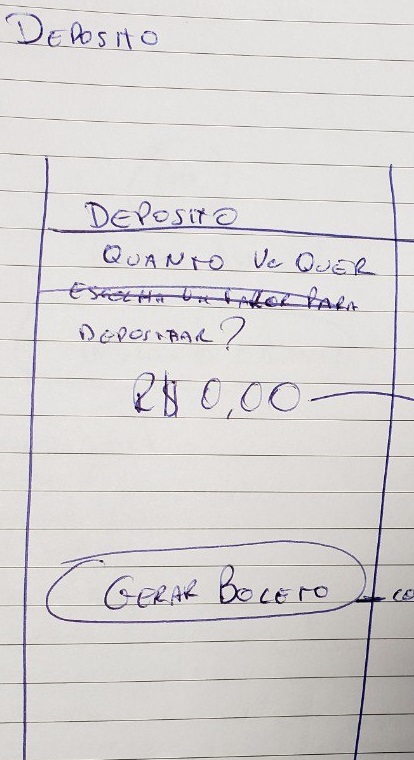 DEPOSITO
DEPOSITO
QUANTO Vc QUER
ESCOLHA UM VALOR PARA
DEPOSITAR?
R$ 0,00
GERAR BOLETO